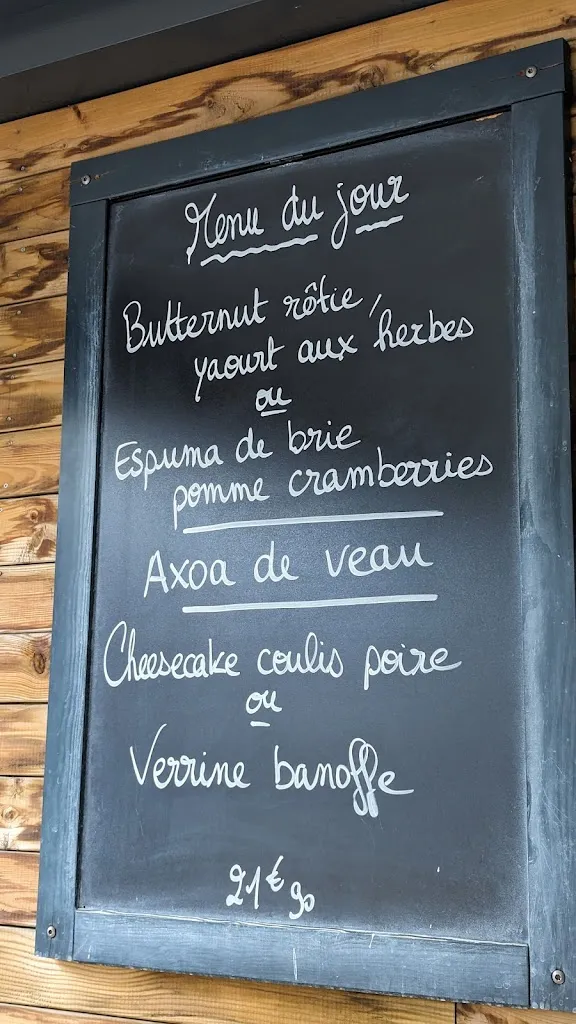 Menu du jour
Butternut rôtie,
yaourt aux herbes
ou
Espuma de brie
pomme cramberries
Axoa de veau
Cheesecake coulis poire
ou
Verrine banoffe
21€90